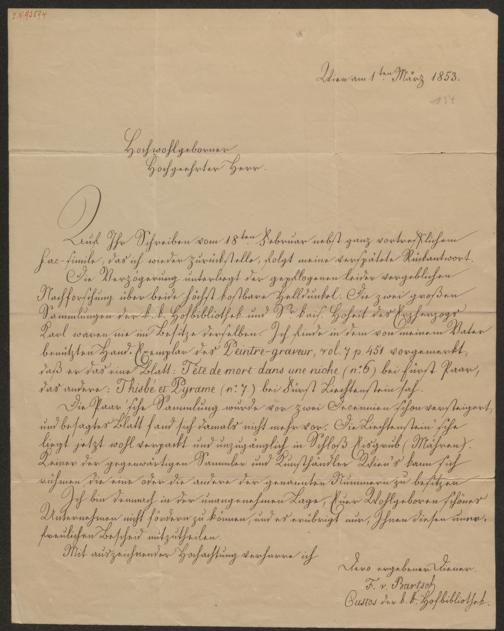 Wien am 1ten März 1853.
Hochwohlgeborner
Hochgeehrter Herr.
Auf Ihr Schreiben vom 18ten Februar nebst ganz vortrefflichem
Fac-simile, das ich wieder zurückstelle, folgt meine verspätete Rückantwort.
Die Verzögerung unterliegt der gepflogenen leider vergeblichen
Nachforschung über beide höchst kostbare Helldunkel. Die zwei großen
Sammlungen der k. k. Hofbibliothek und Sr kais. Hoheit des Erzherzogs
Karl waren nie im Besitze derselben. Ich finde in dem von meinem Vater
benützten Hand-Exemplar des Peintre-graveur, vol. 7 p 451 vorgemerkt,
daß er das eine Blatt: Tête de mort dans une niche (no. 6) bei Fürst Paar,
das andere: Thisbe et Pyrame (no. 7) bei Fürst Liechtenstein sah.
Die Paar'sche Sammlung wurde vor zwei Decennien schon versteigert,
und besagtes Blatt fand sich damals nicht mehr vor. Die Liechtenstein'sche
liegt jetzt wohl verpackt und unzugänglich in Schloß Eisgrub (Mähren).
Keiner der gegenwärtigen Sammler und Kunsthändler Wien's kann sich
rühmen die eine oder die andere der genannten Nummern zu besitzen.
Ich bin demnach in der unangenehmen Lage, Euer Wohlgeboren schönes
Unternehmen nicht fördern zu können, und es erübrigt nur, Ihnen diesen uner-
freulichen Bescheid mitzutheilen.
Mit auszeichnender Hochachtung verharre ich
Dero ergebener Diener
F. v. Bartsch
Custos der k. k. Hofbibliothek.